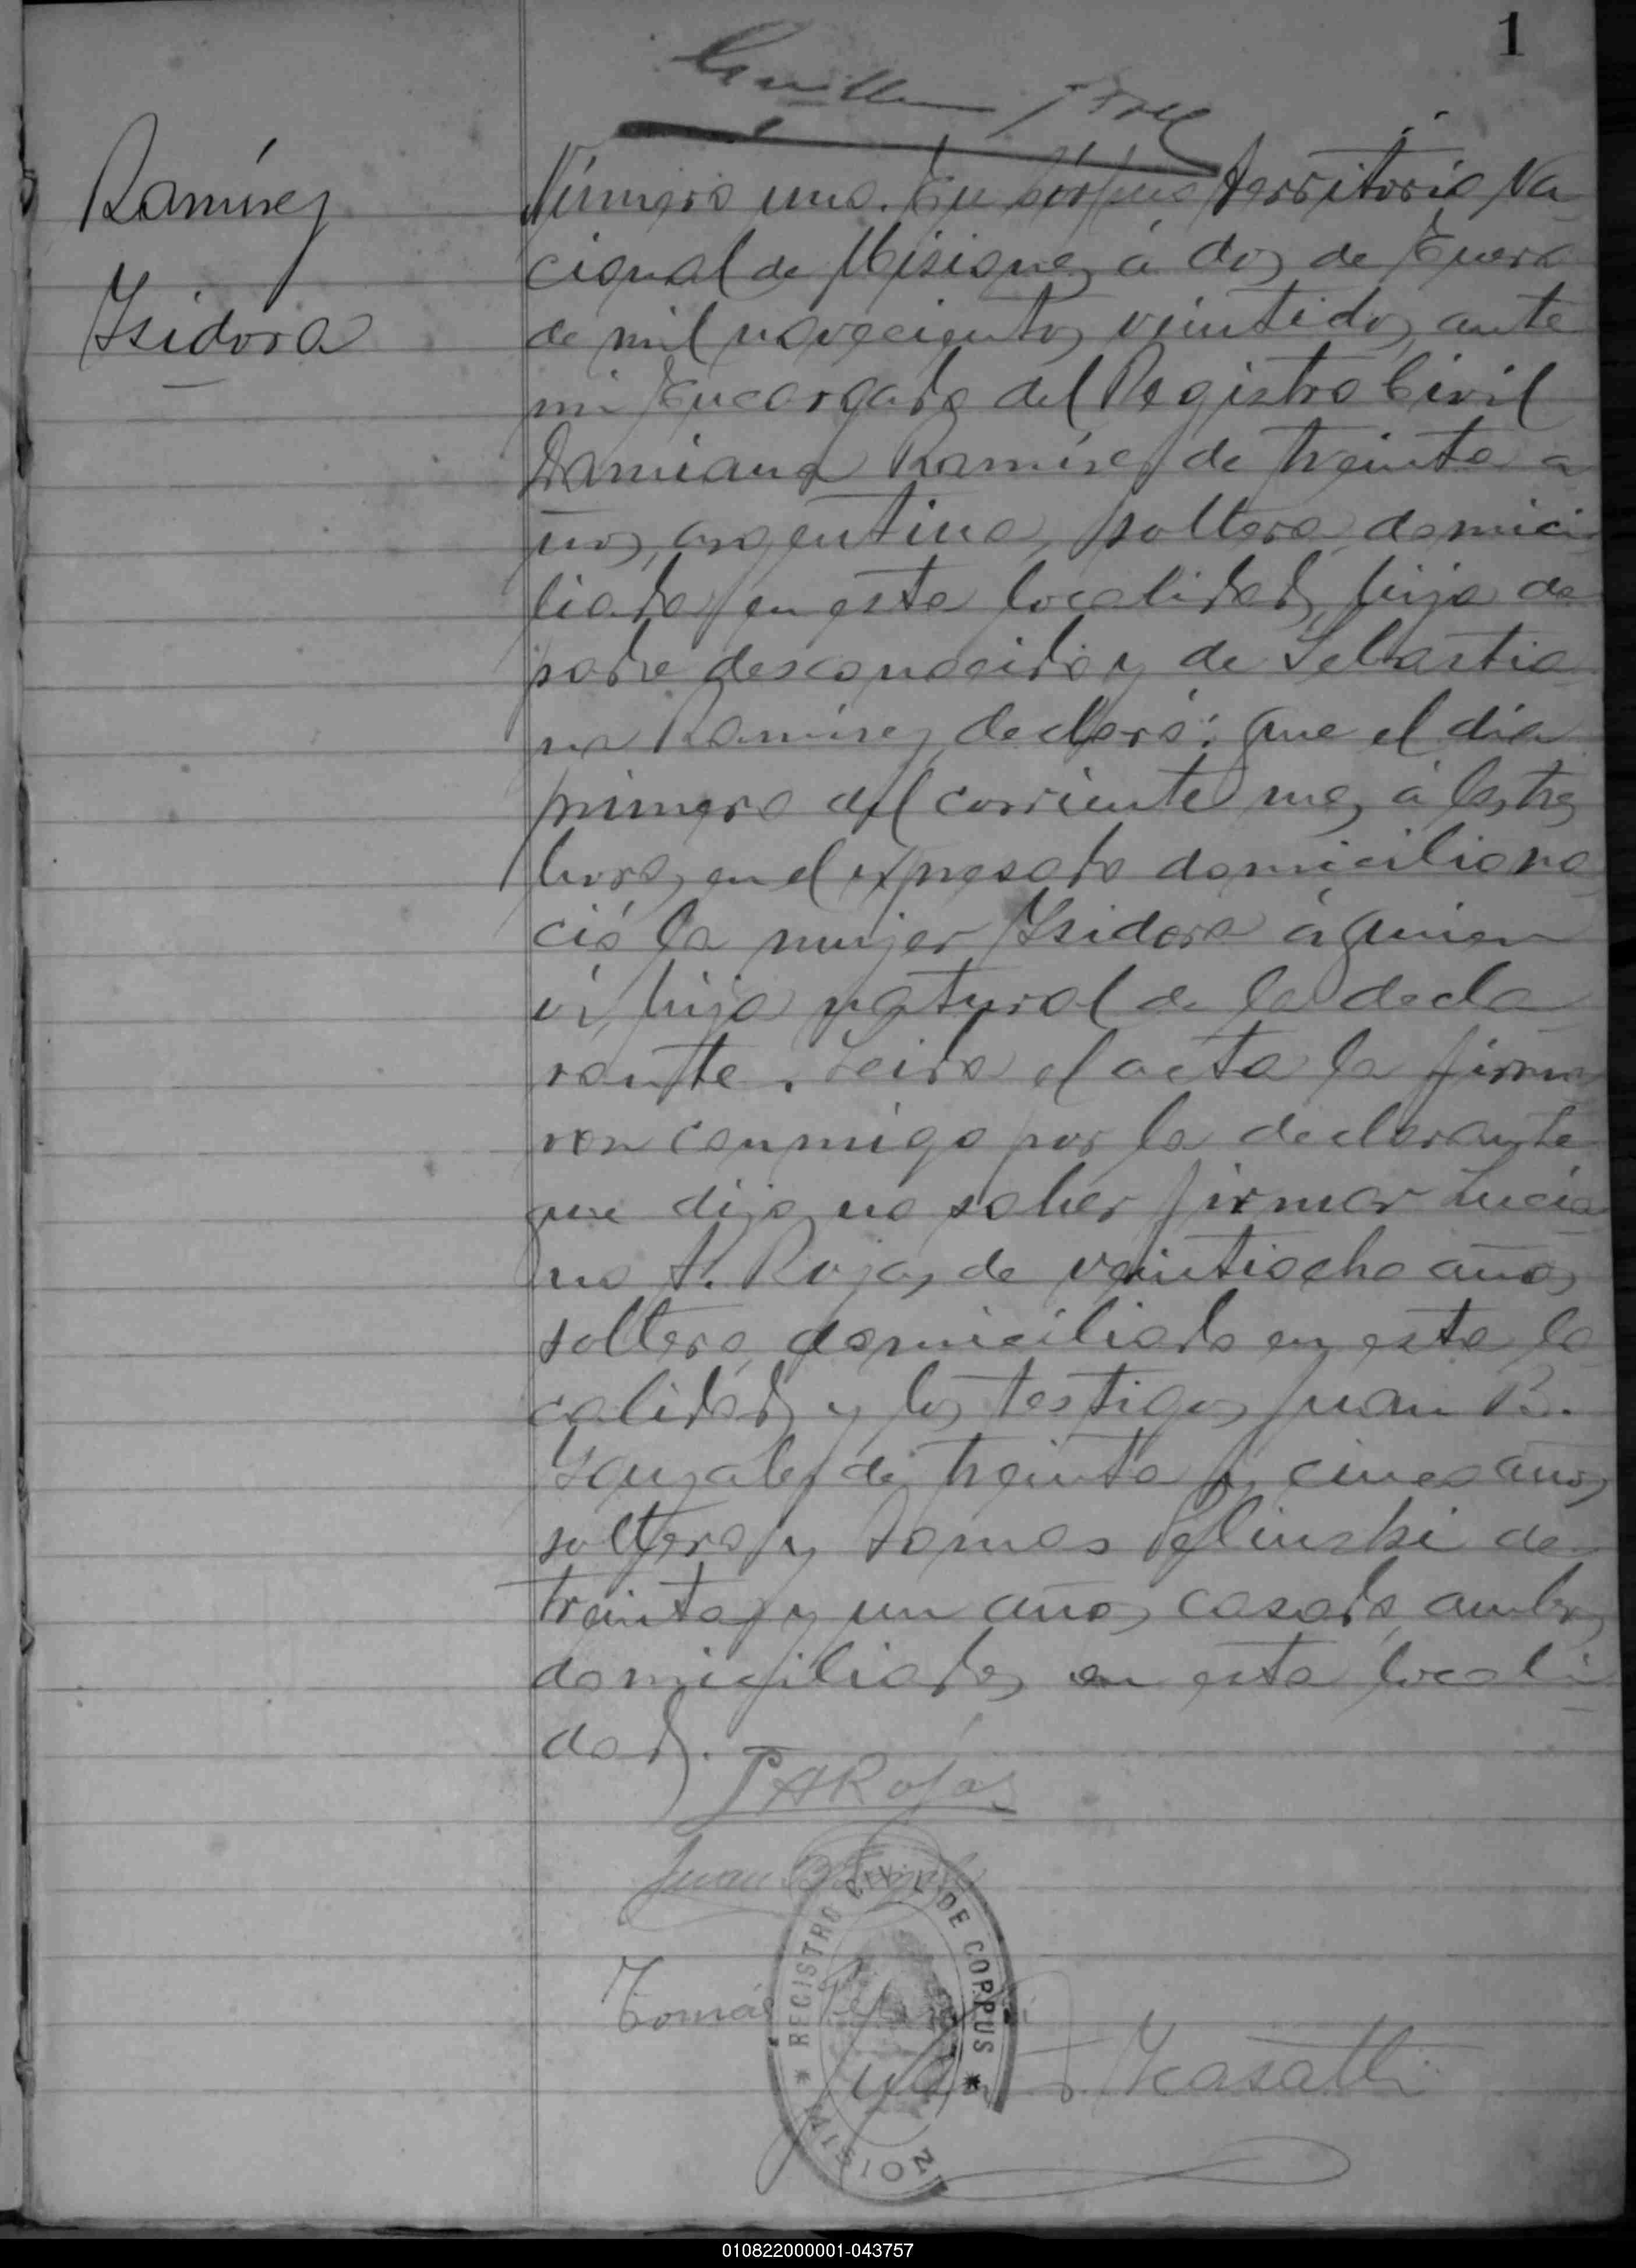 1
Ramírez
Isidora
Número uno. En Corpus Territorio Na
cional de Misiones á dos de Enero
de mil novecientos veintidos, ante
mi Encargado del Registro Civil
Damiana Ramírez de treinta a
ños, argentina, soltera, domici
liada en esta localidad, hija de
padre desconocido y de Sebastia
na Ramírez, declaró: Que el día
primero del corriente mes á las tres
horas, en el expresado domicilio na
ció la mujer Isidora á quien
ví, hija natural de la decla
rante. Leida el acta la firma
ron conmigo por la declarante
que dijo no saber firmar Lucia
no A. Rojas, de veintiocho años
soltero, domiciliado en esta lo
calidad y los testigos Juan B.
Gonzalez de treinta y cinco años
soltero y Tomas de
treinta y un años, casado, ambos
domiciliados en esta locali
dad.
L A Rojas
Juan B
Tomás
REGISTRO CIVIL DE CORPUS
MISION
010822000001-043757